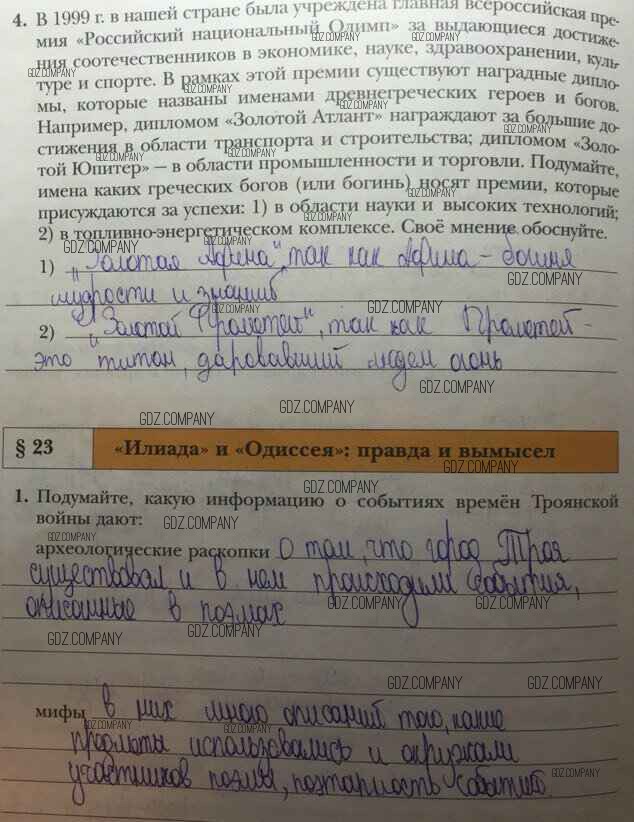 4. В 1999 г. в нашей стране была учреждена главная всероссийская пре-
мия «Российский национальный Олимп» за выдающиеся достиже-
ния соотечественников в экономике, науке, здравоохранении, куль-
туре и спорте. В рамках этой премии существуют наградные дипло-
мы, которые названы именами древнегреческих героев и богов.
Например, дипломом «Золотой Атлант» награждают за большие до-
стижения в области транспорта и строительства; дипломом «Золо-
той Юпитер» — в области промышленности и торговли. Подумайте,
имена каких греческих богов (или богинь) носят премии, которые
присуждаются за успехи: 1) в области науки и высоких технологий;
2) в топливно-энергетическом комплексе. Своё мнение обоснуйте.
1) „Золотая Афина", так как Афина - богиня
мудрости и знаний
2) „Золотой Прометей", так как Прометей -
это титан, даровавший людям огонь
§ 23 «Илиада» и «Одиссея»: правда и вымысел
1. Подумайте, какую информацию о событиях времён Троянской
войны дают:
археологические раскопки О том, что город Троя
существовал и в нем происходили события,
описанные в поэмах
мифы в них много описаний того, какие
предметы использовались и окружали
участников поэмы, поэтапность событий
GDZ.COMPANY